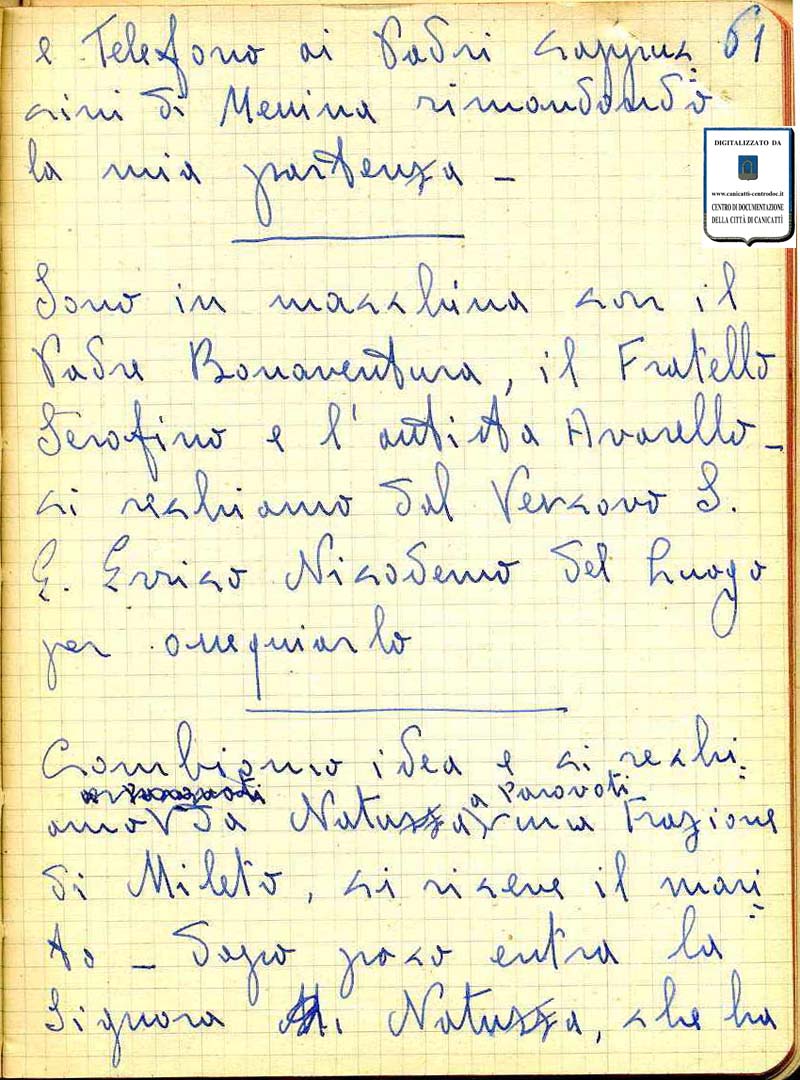 61
e Telefono ai Padri cappuc:
cini di Messina rimandando
la mia partenza –
DIGITALIZZATO DA
www.canicatti-centrodoc.it
CENTRO DI DOCUMENTAZIONE
DELLA CITTÀ DI CANICATTÌ
Sono in macchina con il
Padre Bonaventura, il Fratello
Serafino e l'autista Avarello –
ci rechiamo dal Vescovo S.
E. Errico Nicodemo del luogo
per ossequiarlo
Cambiamo idea e ci rechi:
amo da Natuzza, a Paravati una Frazione
di Mileto, ci riceve il mari:
to – Dopo poco entra la
Signora Natuzza, che ha